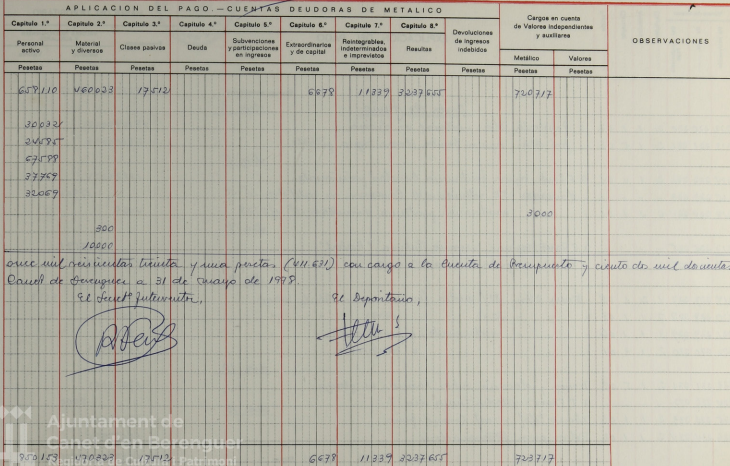 APLICACIÓN DEL PAGO.—CUENTAS DEUDORAS DE METALICO
Capítulo 1.º Capítulo 2.º Capítulo 3.º Capítulo 4.º Capítulo 5.º Capítulo 6.º Capítulo 7.º Capítulo 8.º Devoluciones de ingresos indebidos Cargos en cuenta de Valores independientes y auxiliares OBSERVACIONES
Personal activo Material y diversos Clases pasivas Deuda Subvenciones y participaciones en ingresos Extraordinarios y de capital Reintegrables, indeterminados e imprevistos Resultas Metálico Valores
Pesetas Pesetas Pesetas Pesetas Pesetas Pesetas Pesetas Pesetas Pesetas Pesetas Pesetas
658110 460023 17512 6678 11339 3237655 720717
30032
24585
67598
37769
32069
3000
300
10000
once mil seiscientas treinta y una pesetas (411.631) con cargo a la Cuenta de Presupuesto y ciento dos mil doscientas
Canet de Berenguer a 31 de mayo de 1978.
El Secret Interventor, El Depositario,
Ajuntament de
Canet d'en Berenguer
Regidoria de Cultura i Patrimoni
850153 470323 17512 6678 11339 3237655 723717